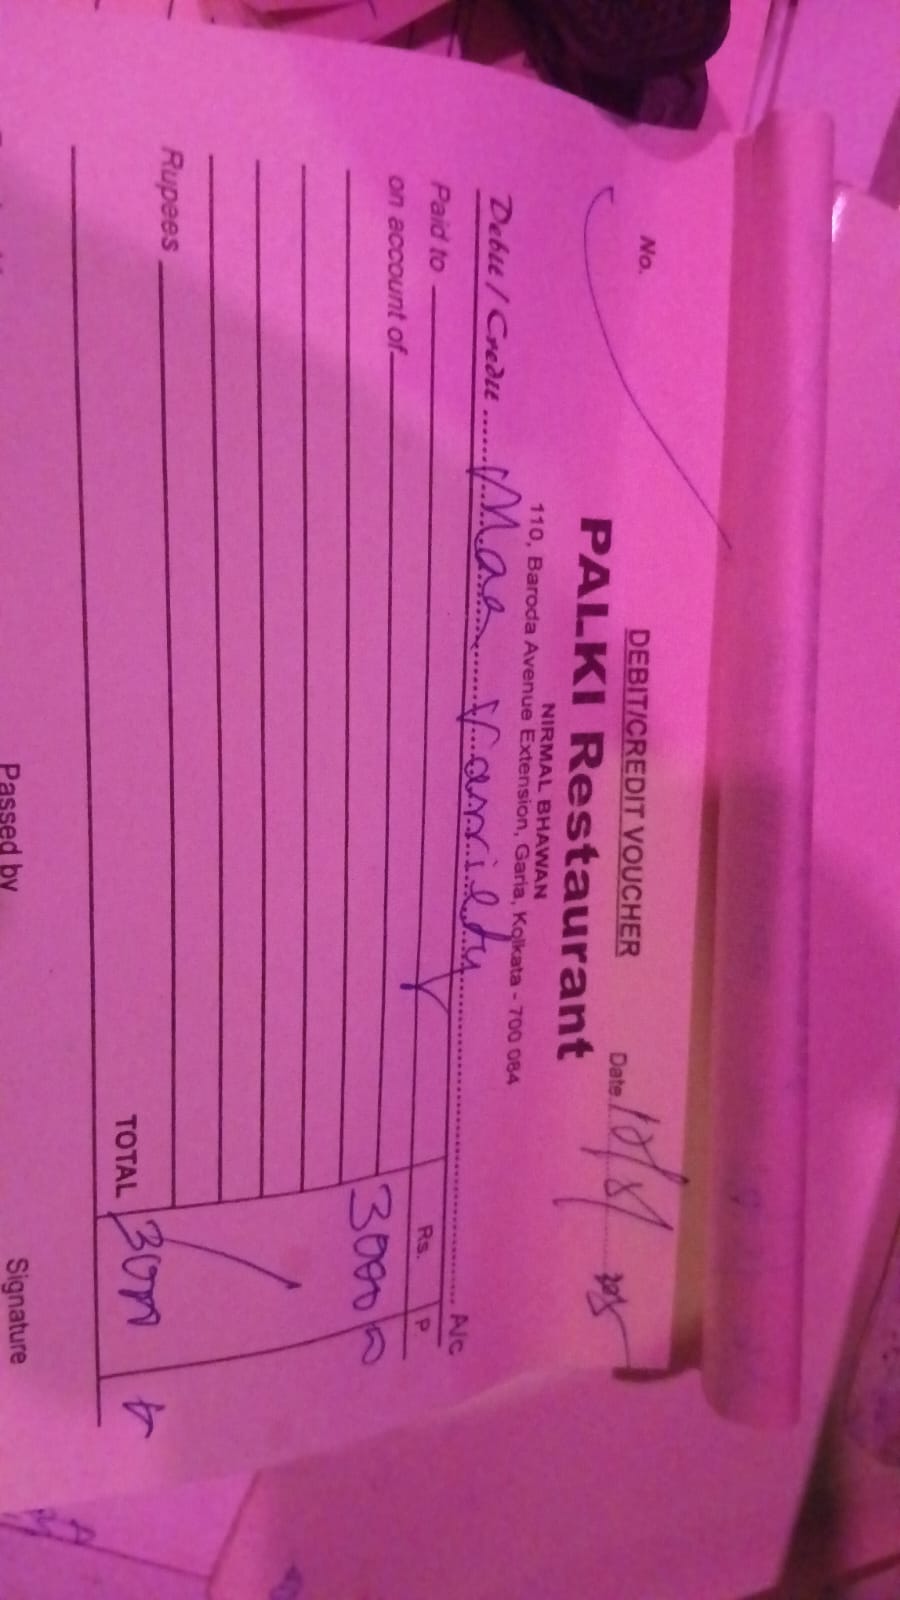 DEBIT/CREDIT VOUCHER
No.
Date
PALKI Restaurant
NIRMAL BHAWAN
110, Baroda Avenue Extension, Garia, Kolkata - 700 084
Debit / Credit ...... Maa ...... A/c
Paid to
Rs. P.
on account of
3000
Rupees
TOTAL
Passed by
Signature